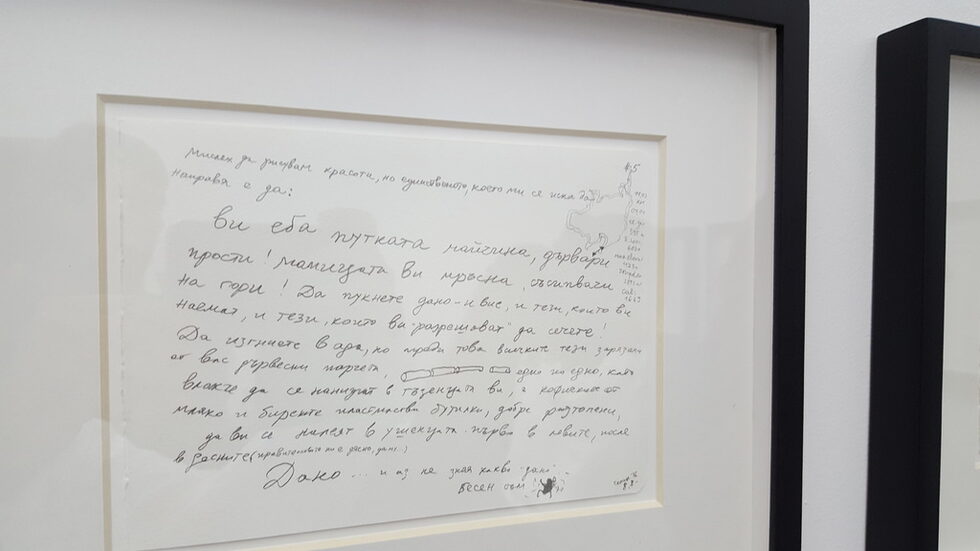 Мислех да рисувам красоти, но единственото, което ми се иска да
направя е да:
ви еба путката майчина, дървари
прости! Мамицата ви мръсна, съсипвачи
на гори! Да пукнете дано - и вие, и тези, които ви
наемат, и тези, които ви "разрешават" да сечете!
Да изгниете в ада, но преди това всичките тези зарязани
от вас дървесни парчета, едно по едно, как
влажче да се нанижат в гъзенцата ви, а кофичките от
мляко и бирените пластмасови бутилки, добре разтопени,
да ви се налеят в ушенцата. Първо в левите, после
в десните (правителството ни е дясно, дано..)
Дано... и аз не зная какво "дано"
бесен съм
№5